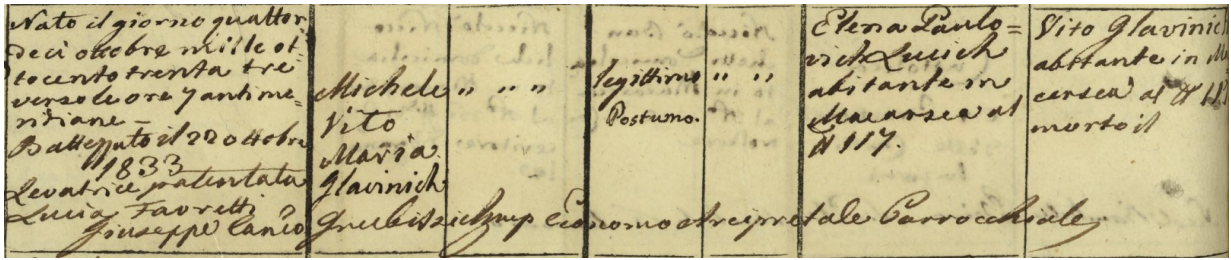 Nato il giorno quattor
deci ottobre mille ot
tocento trenta tre
verso le ore 7 antime=
ridiane =
Battezzato il 22 ottobre
1833
Levatrice patentata
Lucia Favretti
Michele
Vito
Maria
Glavinich
" " "
legittimo
Postumo.
" "
Elena Paulo=
vich Lucich
abitante in
Macarsca al
N 117.
Vito Glavinich
abitante in Ma
carsca al N 11
morto il
Giuseppe Can.co Economo Arcipretale Parrocchiale